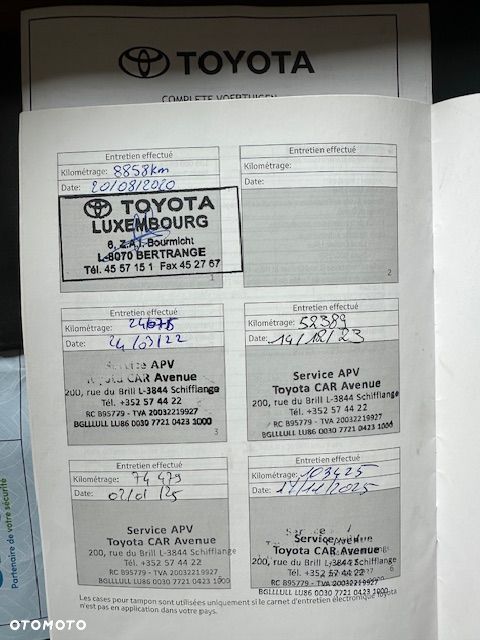 TOYOTA
COMPLETE VOERTUIGEN
Entretien effectué
Kilométrage: 8858km
Date: 20/08/2020
TOYOTA
LUXEMBOURG
6, Z.A.I. Bourmicht
L-8070 BERTRANGE
Tél. 45 57 15 1 Fax 45 27 67
1
Entretien effectué
Kilométrage:
Date:
2
Entretien effectué
Kilométrage:
Date: 24/03/22
Service APV
Toyota CAR Avenue
200, rue du Brill L-3844 Schifflange
Tél. +352 57 44 22
RC B95779 - TVA 20032219927
BGLLLULL LU86 0030 7721 0423 1000
3
Entretien effectué
Kilométrage: 52389
Date: 14/12/23
Service APV
Toyota CAR Avenue
200, rue du Brill L-3844 Schifflange
Tél. +352 57 44 22
RC B95779 - TVA 20032219927
BGLLLULL LU86 0030 7721 0423 1000
Entretien effectué
Kilométrage: 74 479
Date: 02/01/25
Service APV
Toyota CAR Avenue
200, rue du Brill L-3844 Schifflange
Tél. +352 57 44 22
RC B95779 - TVA 20032219927
BGLLLULL LU86 0030 7721 0423 1000
Entretien effectué
Kilométrage: 103425
Date: 17/11/2025
Service
Toyota CAR Avenue
200, rue du Brill L-3844 Schifflange
Tél. +352 57 44 22
RC B95779 - TVA 20032219927
BGLLLULL LU86 0030 7721 0423 1000
6
Les cases pour tampon sont utilisées uniquement si le carnet d'entretien électronique Toyota
n'est pas en application dans votre pays.
Partenaire de votre sécurité
OTOMOTO